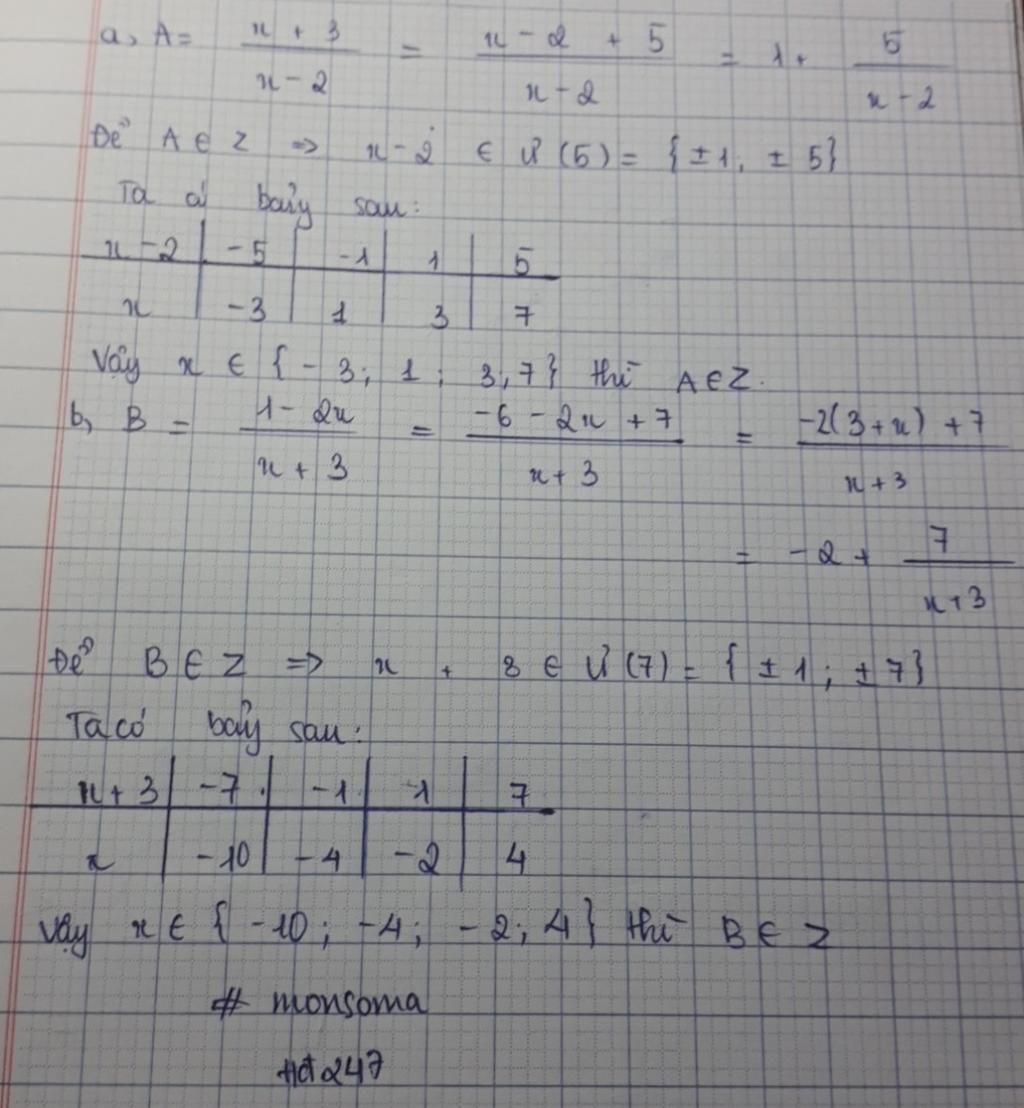 a, A = \frac{x + 3}{x - 2} = \frac{x - 2 + 5}{x - 2} = 1 + \frac{5}{x - 2}
Để A ∈ Z => x - 2 ∈ Ư (5) = {±1; ± 5}
Ta có bảng sau:
x - 2 | -5 | -1 | 1 | 5
x | -3 | 1 | 3 | 7
Vậy x ∈ {- 3; 1; 3; 7} thì A ∈ Z.
b, B = \frac{1 - 2x}{x + 3} = \frac{-6 - 2x + 7}{x + 3} = \frac{-2(3 + x) + 7}{x + 3}
= -2 + \frac{7}{x + 3}
Để B ∈ Z => x + 3 ∈ Ư (7) = {± 1; ± 7}
Ta có bảng sau:
x + 3 | -7 | -1 | 1 | 7
x | -10 | -4 | -2 | 4
Vậy x ∈ {-10; -4; -2; 4} thì B ∈ Z
# monsoma
Hđ247